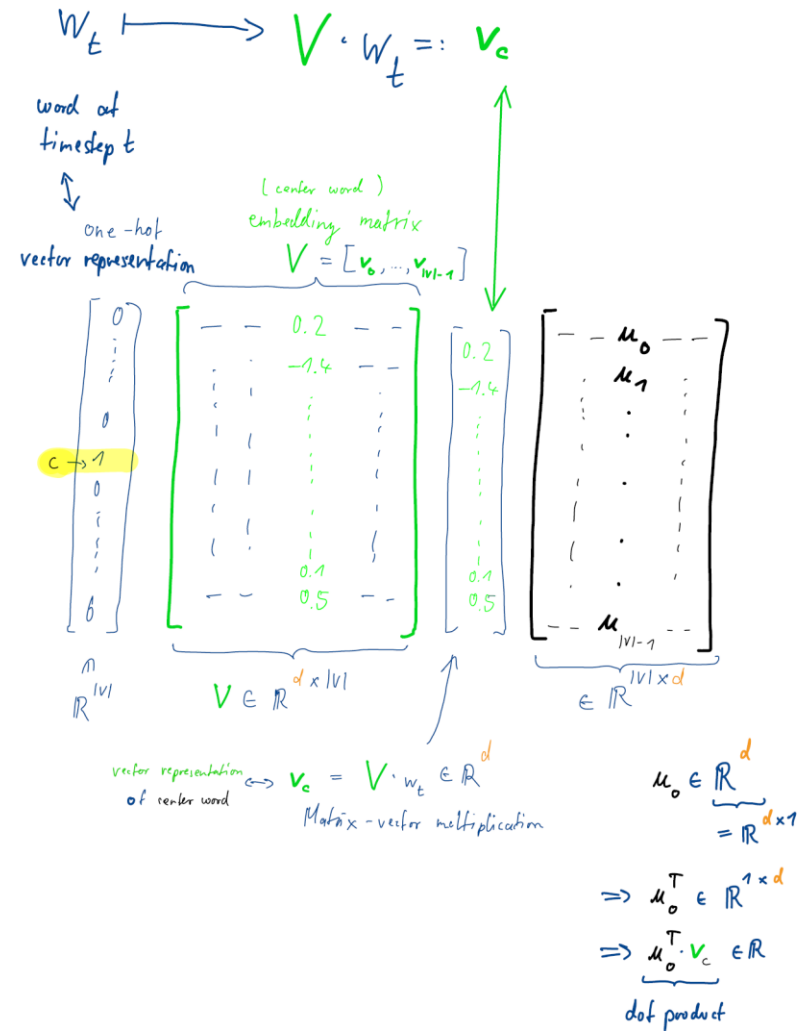 w_t ⟼ V · w_t =: v_c
word at
timestep t
↕
one-hot
vector representation
(center word)
embedding matrix
V = [v_0, ..., v_|V|-1]
0
0
c → 1
0
0
ℝ^|V|
0.2
-1.4
0.1
0.5
V ∈ ℝ^d×|V|
0.2
-1.4
0.1
0.5
u_0
u_1
u_|V|-1
∈ ℝ^|V|×d
vector representation ↔ v_c = V · w_t ∈ ℝ^d
of center word
Matrix-vector multiplication
u_0 ∈ ℝ^d
= ℝ^d×1
⇒ u_0^T ∈ ℝ^1×d
⇒ u_0^T · v_c ∈ ℝ
dot product